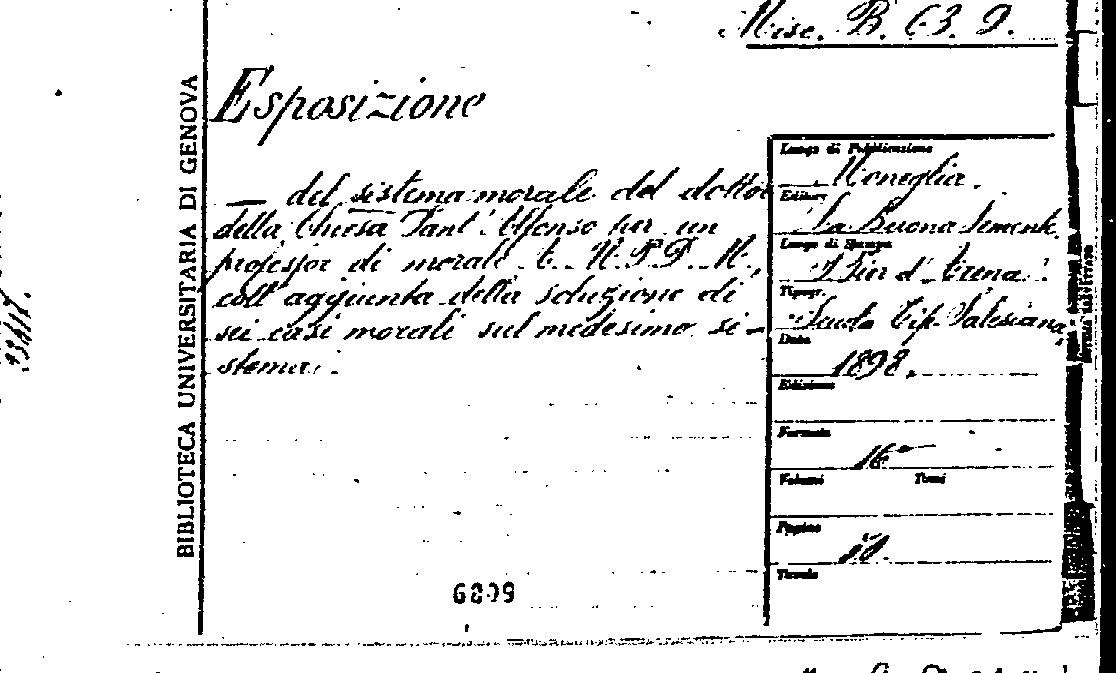 Misc. B. 63. 9.
BIBLIOTECA UNIVERSITARIA DI GENOVA
Esposizione
— del sistema morale del dottor
della Chiesa Sant' Alfonso per un
professor di morale
coll' aggiunta della soluzione di
sei casi morali sul medesimo si-
stema.
Luogo di Pubblicazione
Moneglia.
Editore
La Buona Semente
Luogo di Stampa
S. Pier d' Arena.
Tipogr.
Scuola Tip. Salesiana
Data
1898.
Edizione
Formato
16°
Volumi Tomi
Pagine
Tavole
6809